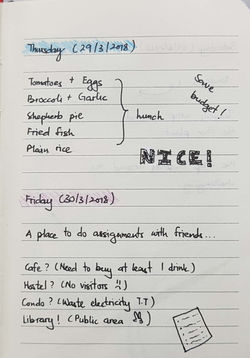 Thursday (29/3/2018)
Tomatoes + Eggs
Broccoli + Garlic
Shepherd pie
Fried fish
Plain rice
lunch
Save budget!
NICE!
Friday (30/3/2018)
A place to do assignments with friends...
Cafe? (Need to buy at least 1 drink)
Hostel? (No visitors !!)
Condo? (Waste electricity T.T)
Library! (Public area)